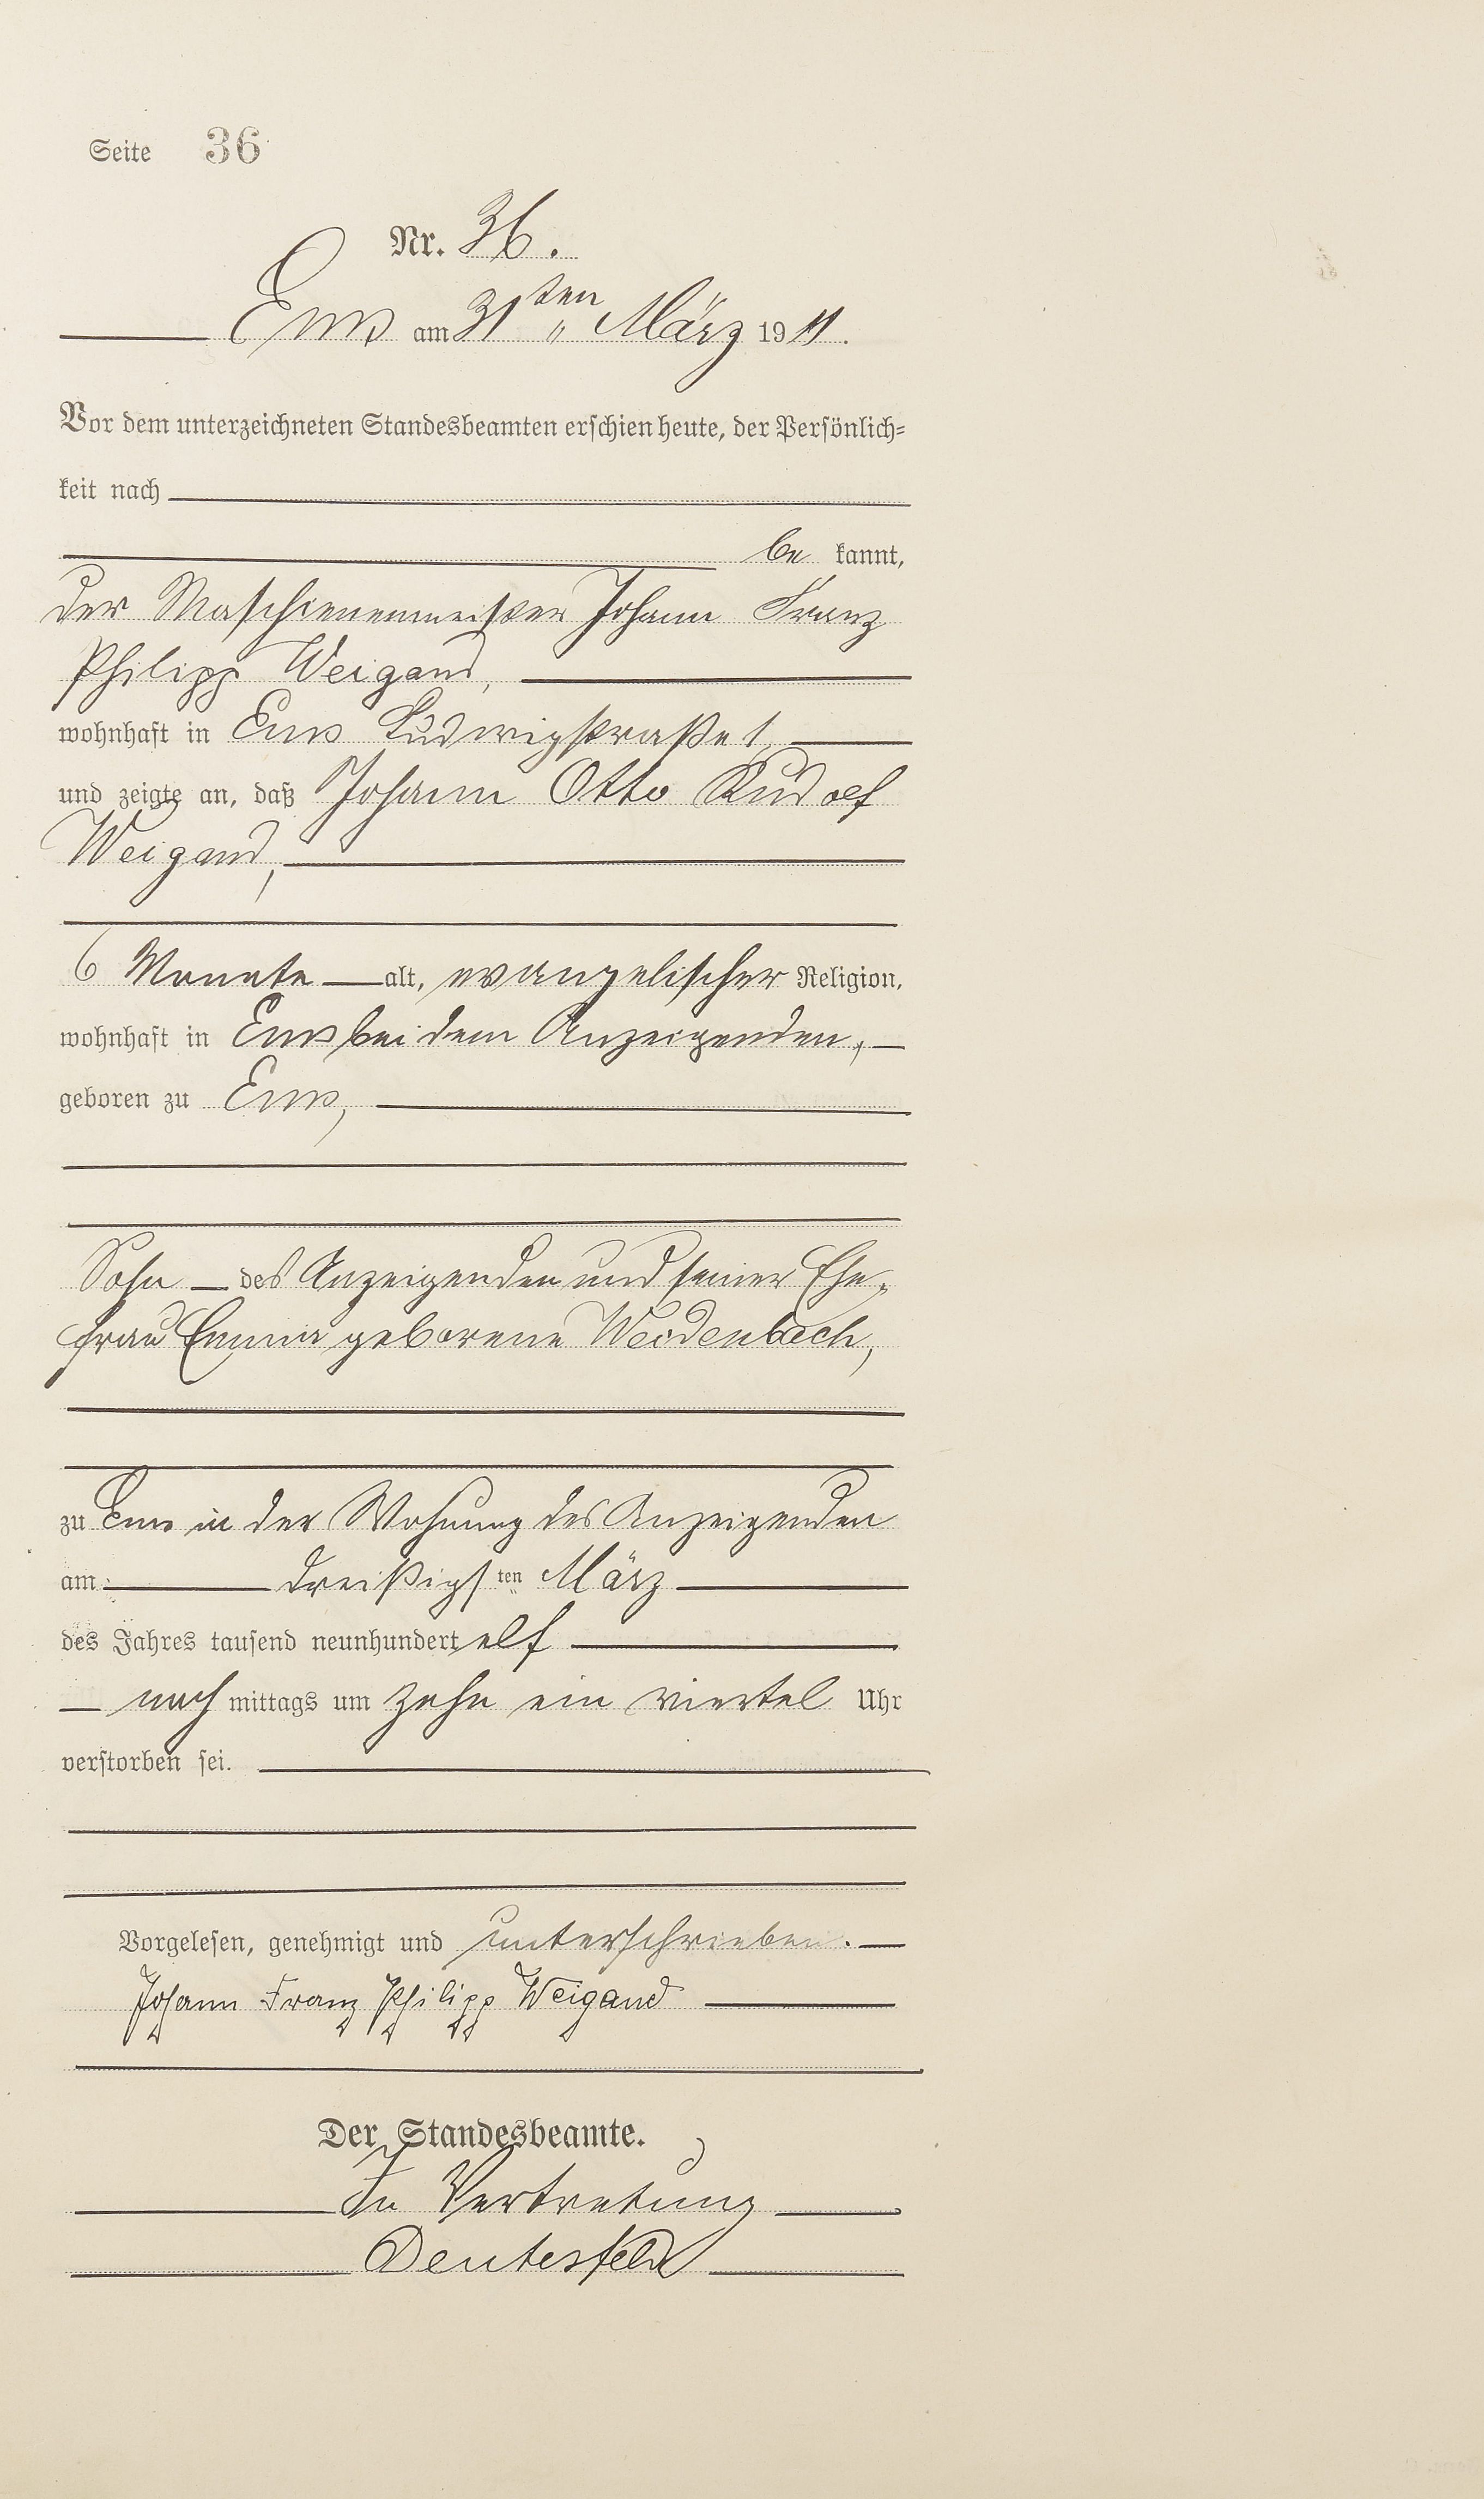 Seite 36
Nr. 36.
Ems am 31ten „ März 1911.
Vor dem unterzeichneten Standesbeamten erschien heute, der Persönlich-
keit nach
be kannt,
der Maschienenmeister Johann Franz
Philipp Weigand,
wohnhaft in Ems Ludwigstraße 1,
und zeigte an, daß Johann Otto Rudolf
Weigand,
6 Monate alt, evangelischer Religion,
wohnhaft in Ems bei dem Anzeigenden,
geboren zu Ems,
Sohn des Anzeigenden und seiner Ehe-
frau Emma geborene Weidenbach,
zu Ems in der Wohnung des Anzeigenden
am dreißigsten März
des Jahres tausend neunhundert elf
nach mittags um zehn ein viertel Uhr
verstorben sei.
Vorgelesen, genehmigt und unterschrieben.
Johann Franz Philipp Weigand
Der Standesbeamte.
In Vertretung
Deutesfeld